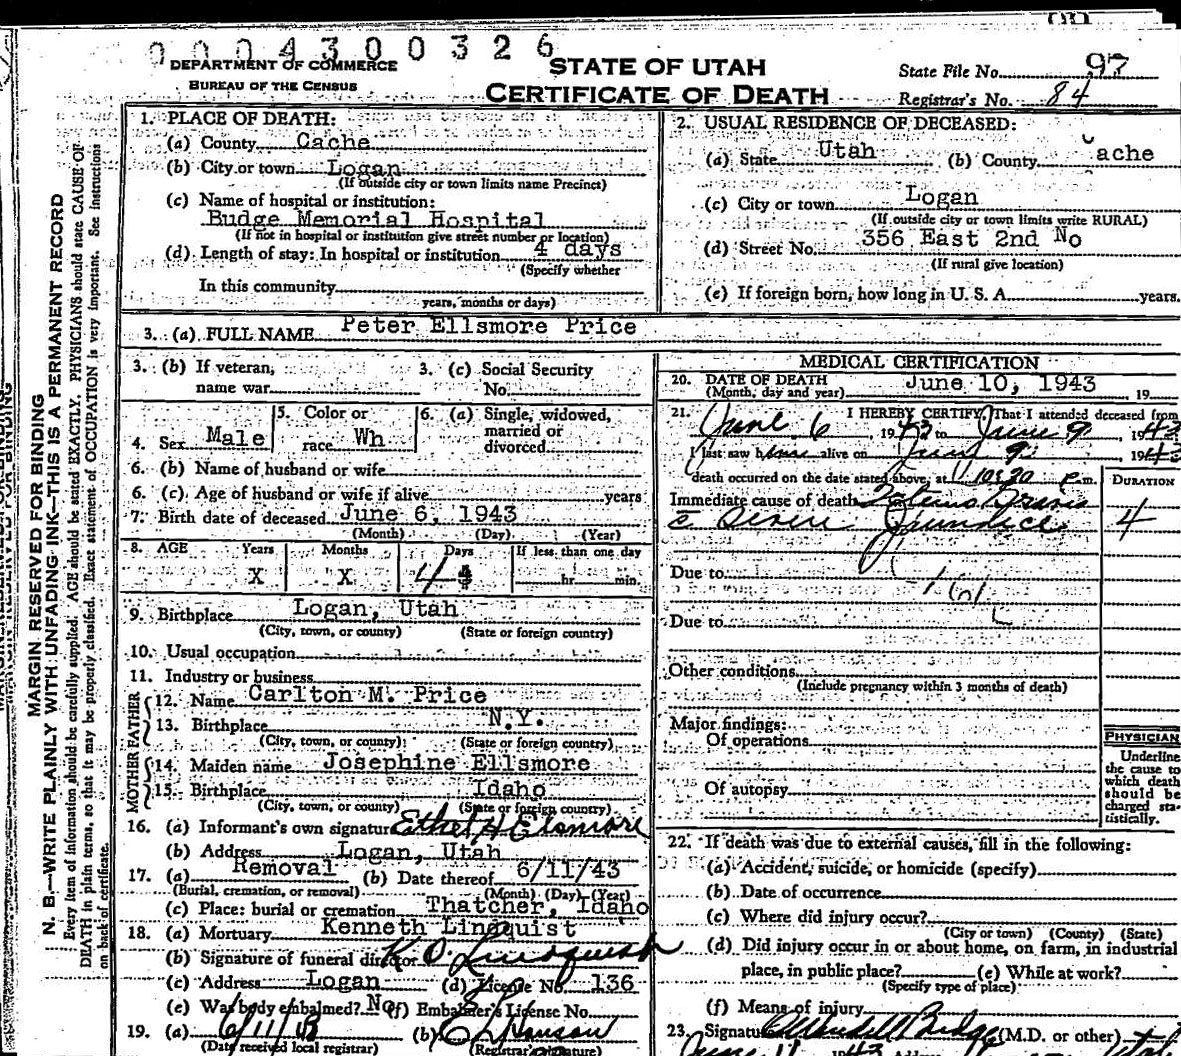 0004300326
DEPARTMENT OF COMMERCE
BUREAU OF THE CENSUS
STATE OF UTAH
CERTIFICATE OF DEATH
State File No. 97
Registrar's No. 84
MARGIN RESERVED FOR BINDING
N. B.—WRITE PLAINLY WITH UNFADING INK—THIS IS A PERMANENT RECORD
Every item of information should be carefully supplied. AGE should be stated EXACTLY. PHYSICIANS should state CAUSE OF
DEATH in plain terms, so that it may be properly classified. Exact statement of OCCUPATION is very important. See instructions
on back of certificate.
1. PLACE OF DEATH:
(a) County Cache
(b) City or town Logan
(If outside city or town limits name Precinct)
(c) Name of hospital or institution:
Budge Memorial Hospital
(If not in hospital or institution give street number or location)
(d) Length of stay: In hospital or institution 4 days
(Specify whether
In this community
years, months or days)
2. USUAL RESIDENCE OF DECEASED:
(a) State Utah (b) County Cache
(c) City or town Logan
(If outside city or town limits write RURAL)
(d) Street No. 356 East 2nd No
(If rural give location)
(e) If foreign born, how long in U. S. A. years.
3. (a) FULL NAME Peter Ellsmore Price
3. (b) If veteran, name war 3. (c) Social Security No.
4. Sex Male 5. Color or race Wh 6. (a) Single, widowed, married or divorced
6. (b) Name of husband or wife
6. (c) Age of husband or wife if alive years
7. Birth date of deceased June 6, 1943
(Month) (Day) (Year)
8. AGE Years Months Days If less than one day
X X 4 hr. min.
9. Birthplace Logan, Utah
(City, town, or county) (State or foreign country)
10. Usual occupation
11. Industry or business
FATHER
12. Name Carlton M. Price
13. Birthplace N.Y.
(City, town, or county) (State or foreign country)
MOTHER
14. Maiden name Josephine Ellsmore
15. Birthplace Idaho
(City, town, or county) (State or foreign country)
16. (a) Informant's own signature Ethel H Elsmore
(b) Address Logan, Utah
17. (a) Removal (b) Date thereof 6/11/43
(Burial, cremation, or removal) (Month) (Day) (Year)
(c) Place: burial or cremation Thatcher, Idaho
18. (a) Mortuary Kenneth Linquist
(b) Signature of funeral director K O Lindquist
(c) Address Logan (d) License No. 136
(e) Was body embalmed? No (f) Embalmer's License No.
19. (a) 6/11/43 (b)
(Date received local registrar) (Registrar's signature)
MEDICAL CERTIFICATION
20. DATE OF DEATH June 10, 1943
(Month, day and year) 19
21. I HEREBY CERTIFY, That I attended deceased from
June 6, 1943, to June 9, 1943
I last saw him alive on June 9, 1943
death occurred on the date stated above, at 10:30 P.m.
DURATION
Immediate cause of death Icterus Gravis
c Severe Jaundice 4
Due to
Due to
Other conditions
(Include pregnancy within 3 months of death)
Major findings:
Of operations
Of autopsy
PHYSICIAN
Underline
the cause to
which death
should be
charged sta-
tistically.
22. If death was due to external causes, fill in the following:
(a) Accident, suicide, or homicide (specify)
(b) Date of occurrence
(c) Where did injury occur?
(City or town) (County) (State)
(d) Did injury occur in or about home, on farm, in industrial
place, in public place? (e) While at work?
(Specify type of place)
(f) Means of injury
23. Signature Budge (M.D. or other)
June 11 1943 Address